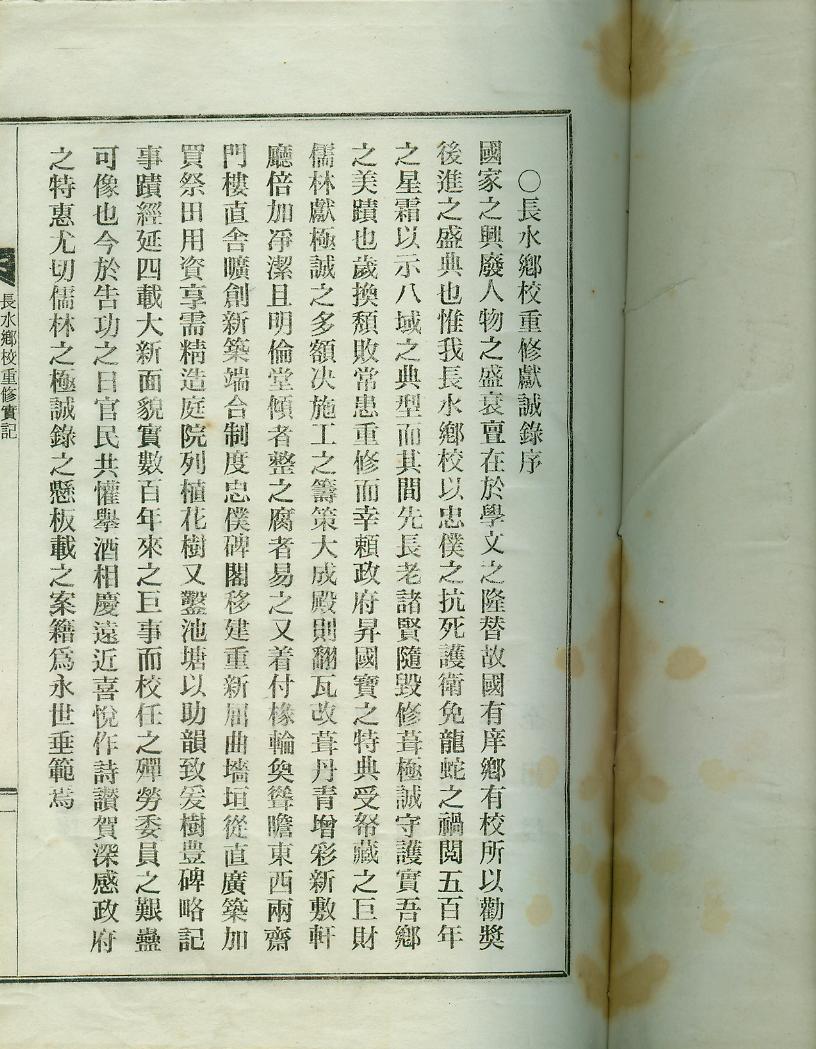 ○長水鄉校重修獻誠錄序
國家之興廢人物之盛衰亶在於學文之隆替故國有庠鄉有校所以勸奬
後進之盛典也惟我長水鄉校以忠僕之抗死護衛免龍蛇之禍閱五百年
之星霜以示八域之典型而其間先長老諸賢隨毀修葺極誠守護實吾鄉
之美蹟也歲換頹敗常患重修而幸賴政府昇國寶之特典受帑藏之巨財
儒林獻極誠之多額決施工之籌策大成殿則翻瓦改葺丹靑增彩新敷軒
廳倍加凈潔且明倫堂傾者整之腐者易之又着付椽輪奐聳瞻東西兩齋
門樓直舍曠創新築端合制度忠僕碑閣移建重新屈曲墻垣從直廣築加
買祭田用資享需精造庭院列植花樹又鑿池塘以助韻致爰樹豊碑略記
事蹟經延四載大新面貌實數百年來之巨事而校任之殫勞委員之艱蠱
可像也今於告功之日官民共懽擧酒相慶遠近喜悅作詩讚賀深感政府
之特惠尤切儒林之極誠錄之懸板載之案籍爲永世垂範焉
長水鄉校重修實記